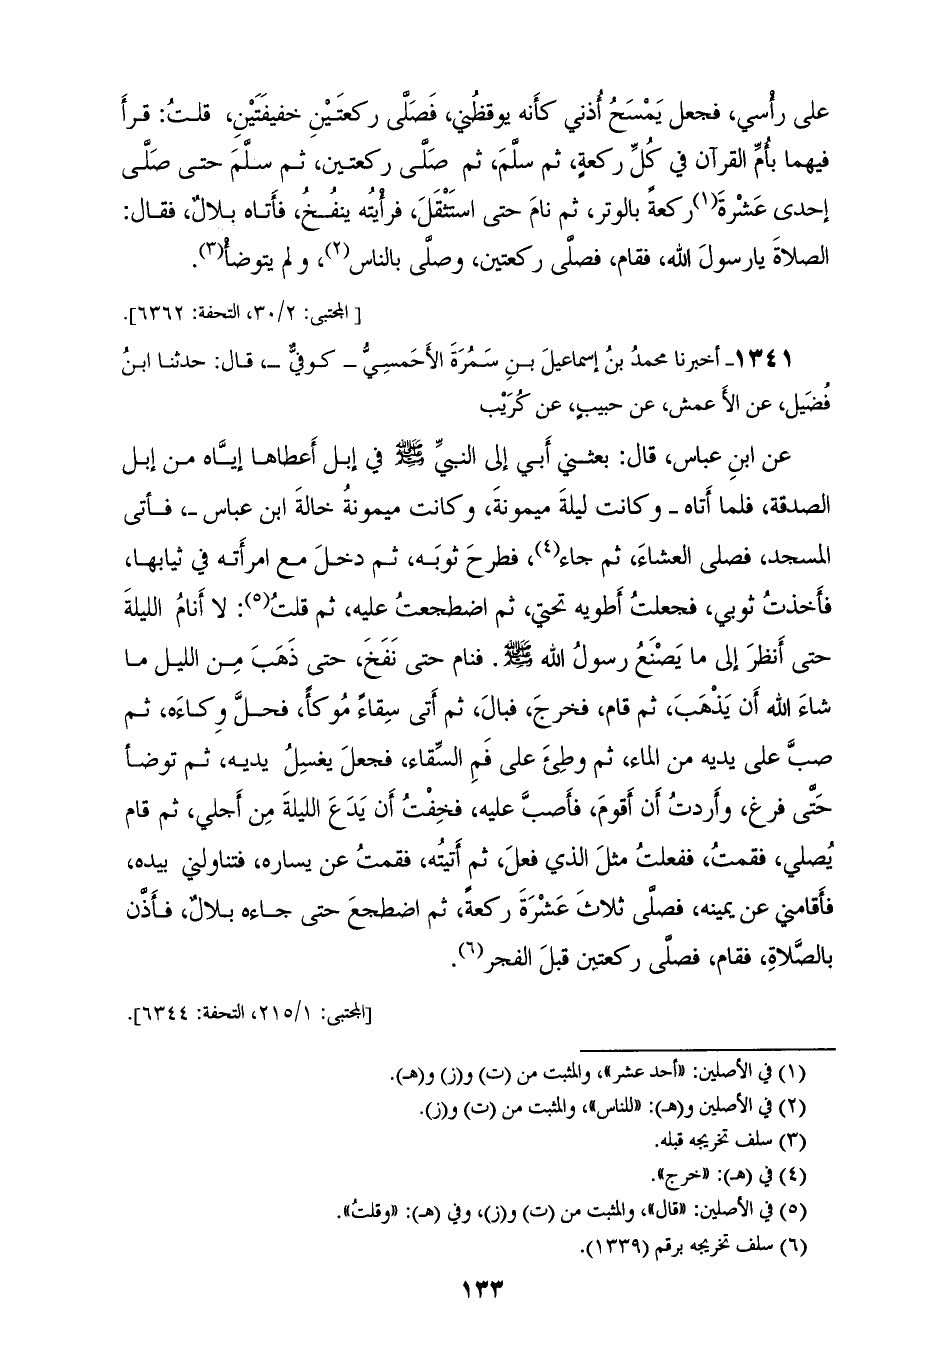 على رأْسي، فجعل يَمْسَحُ أُذني كأَنه يوقظُني، فَصَلَّى ركعتَيْنِ خفيفَتَيْنِ، قلتُ: قرأَ
فيهما بأُمِّ القرآن في كُلِّ ركعةٍ، ثم سلَّمَ، ثم صَلَّى ركعتين، ثم سلَّمَ حتى صَلَّى
إحدى عَشْرةَ(١)ركعةً بالوتر، ثم نامَ حتى استَثْقَلَ، فرأيْتُه ينفُخُ، فأَتاه بلالٌ، فقال:
الصلاةَ يارسولَ الله، فقام، فصلَّى ركعتين، وصلَّى بالناس(٢)، و لم يتوضأْ(٣).
[ المجتبى: ٣٠/٢، التحفة: ٦٣٦٢].
١٣٤١ـ أخبرنا محمدُ بنُ إسماعيلَ بنِ سَمُرَةَ الأَحمسيُّ ـ كوفيٌّ ـ، قال: حدثنا ابنُ
فُضَيل، عن الأَعمش، عن حبيبٍ، عن كُرَيْب
عن ابنِ عباس، قال: بعثني أَبي إلى النبيِّ ﷺ في إبل أَعطاها إيَّاه من إبل
الصدقة، فلما أَتاه ـ وكانت ليلةَ ميمونةَ، وكانت ميمونةُ خالةَ ابن عباس ـ، فأتى
المسجد، فصلى العشاءَ، ثم جاء(٤)، فطرحَ ثوبَه، ثم دخلَ مع امرأَته في ثيابها،
فأَخذتُ ثوبي، فجعلتُ أَطويه تحتي، ثم اضطجعتُ عليه، ثم قلتُ(٥): لا أَنامُ الليلةَ
حتى أَنظرَ إلى ما يَصْنَعُ رسولُ الله ﷺ. فنام حتى نَفَخَ، حتى ذَهَبَ مِن الليل ما
شاءَ الله أَن يَذْهَبَ، ثم قام، فخرجَ، فبالَ، ثم أَتى سِقاءً مُوكأً، فحلَّ وِكاءَه، ثم
صبَّ على يديه من الماء، ثم وطِئَ على فَمِ السِّقاء، فجعلَ يغسِلُ يديه، ثم توضأَ
حَتَّى فرغ، وأَردتُ أَن أَقومَ، فأَصبَّ عليه، فخِفْتُ أَن يَدَعَ الليلةَ مِن أَجلي، ثم قام
يُصلي، فقمتُ، ففعلتُ مثلَ الذي فعلَ، ثم أَتيتُه، فقمتُ عن يساره، فتناولني بيده،
فأَقامني عن يمينه، فصلَّى ثلاثَ عَشْرَةَ ركعةً، ثم اضطجعَ حتى جاءه بلالٌ، فأَذَّن
بالصَّلاةِ، فقام، فصلَّى ركعتين قبلَ الفجر(٦).
[المجتبى: ٢١٥/١، التحفة: ٦٣٤٤].
(١) في الأصلين: «أحد عشر»، والمثبت من (ت) و(ز) و(هـ).
(٢) في الأصلين و(هـ): «للناس»، والمثبت من (ت) و(ز).
(٣) سلف تخريجه قبله.
(٤) في (هـ): «خرج».
(٥) في الأصلين: «قال»، والمثبت من (ت) و(ز)، وفي (هـ): «وقلتُ».
(٦) سلف تخريجه برقم (١٣٣٩).
١٣٣